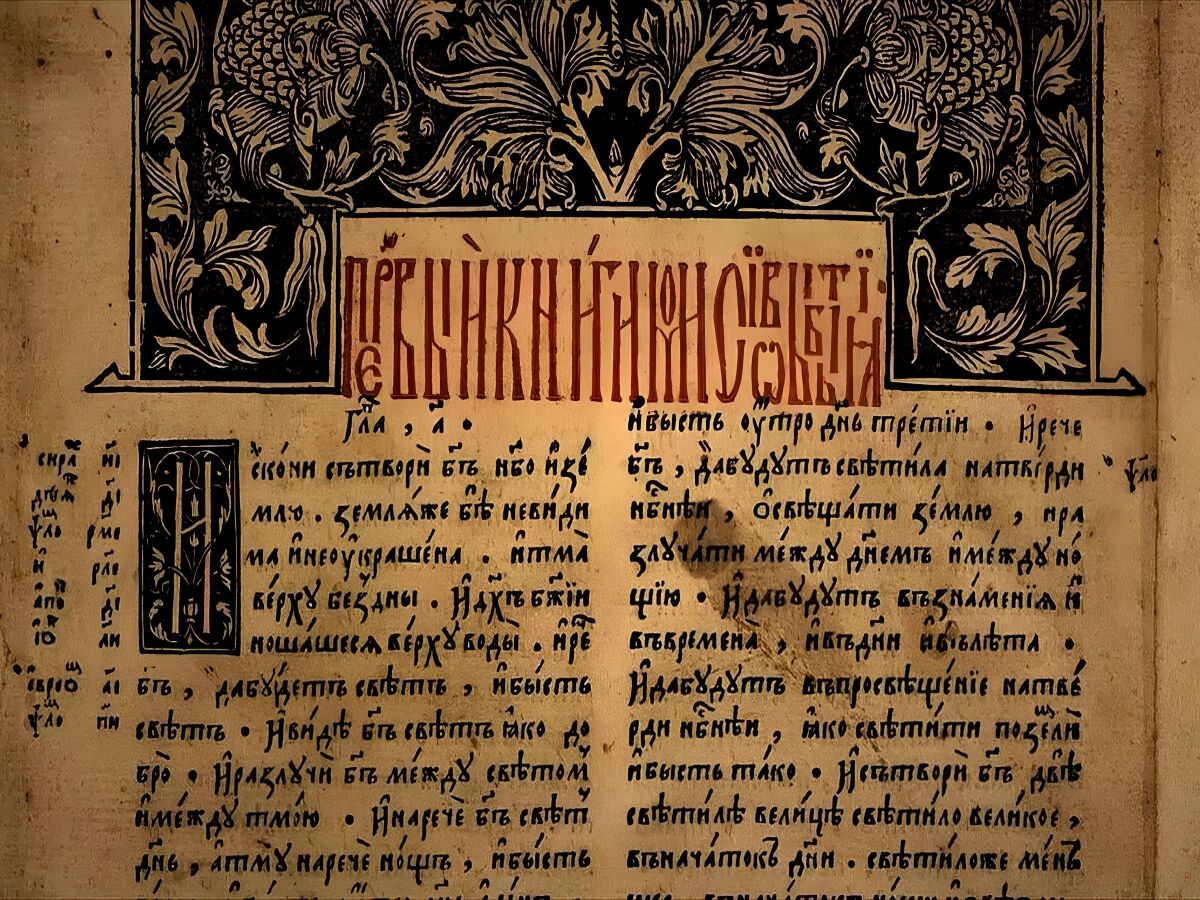 Пе́рвыѧ̀ кни́ги мѡисеѡвы бытїѧ̀.
Гла҃, а҃.
И҆скони сътворѝ бг҃ъ нб҃о и҆зе́
млю . землѧ́же бѣ̀ неви́ди
ма и҆неоу҆краше́на . и҆тма̀
ве́рху бе́здны . И҆дх҃ъ бж҃їи
ноша́шесѧ ве́рху воды̀ . и҆ре́
бг҃ъ , дабу́детъ свѣ́тъ , и҆бы́сть
свѣ́тъ . И҆ви́дѣ бг҃ъ свѣ́тъ ꙗ҆́ко до
бро̀ . И҆разлучѝ бг҃ъ ме́жду свѣ́том
и҆ме́жду тмо́ю . И҆наречѐ бг҃ъ свѣ́т
дн҃ь , а҆тму наречѐ но́щъ , и҆бы́сть
и҆бысть оу҆́тро дн҃ь тре́тїи . И҆рече
бг҃ъ , дабу́дутъ свѣти́ла натве́рди
нбⷭ҇нѣи , ѻ҆свѣща́ти зе́млю , ира
злуча́ти ме́жду дн҃емъ и҆ме́жду но́
щїю . И҆дабу́дутъ възна́менїѧ и҆
въвремена̀ , и҆въдн҃и и҆влѣ́та .
И҆дабу́дутъ въпросвѣще́нїе натве́
рди нбⷭ҇нѣи , ꙗ҆́ко свѣти́ти поземлѝ
и҆бы́сть та́ко . И҆сътворѝ бг҃ъ двѣ̀
свѣти́лѣ вели́цѣ свѣти́ло вели́кое ,
вънача́токъ дн҃и . свѣти́ложе ме́нъ
ѱ҃ло
сира
ѱ҃ло
а҆по
евре
ѱ҃ло